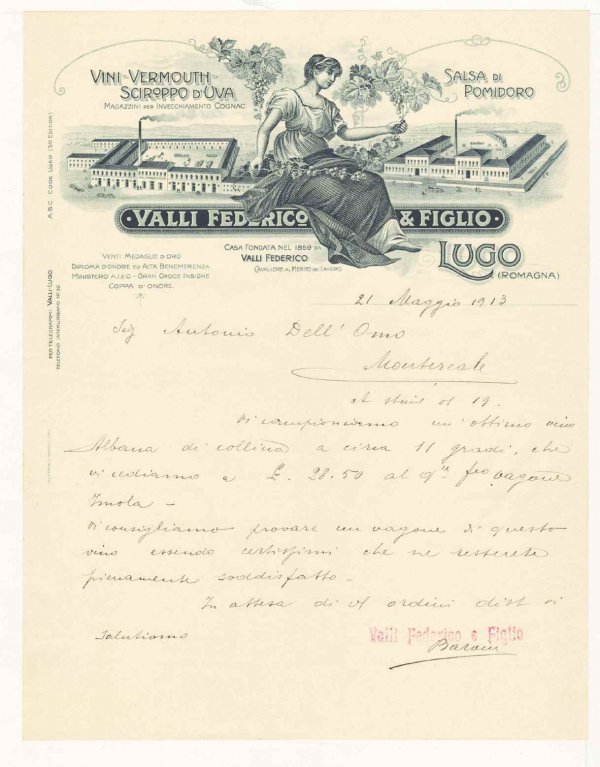 VINI-VERMOUTH-
SCIROPPO D'UVA
MAGAZZINI PER INVECCHIAMENTO COGNAC
SALSA DI
POMIDORO
· VALLI FEDERICO & FIGLIO ·
LUGO
(ROMAGNA)
CASA FONDATA NEL 1859 DA
VALLI FEDERICO
CAVALIERE AL MERITO DEL LAVORO
VENTI MEDAGLIE D'ORO
DIPLOMA D'ONORE ED ALTA BENEMERENZA
MINISTERO A.I.E C. - GRAN CROCE INSIGNE
COPPA D'ONORE
A.B.C. CODE USED (5a EDITION)
PER TELEGRAMMI: VALLI-LUGO
TELEFONO INTERURBANO
21 Maggio 1913
Sig Antonio Dell' Omo
Montereale
19.
Vi campioniamo un' ottimo vino
Albana di collina a circa 11 gradi, che
vi cediamo a £. 28.50 al vagone
Imola -
Vi consigliamo provare un vagone di questo
vino essendo certissimi che ne resterete
pienamente soddisfatto -
In attesa di ordini dist vi
salutiamo
Valli Federico e Figlio
Baroni